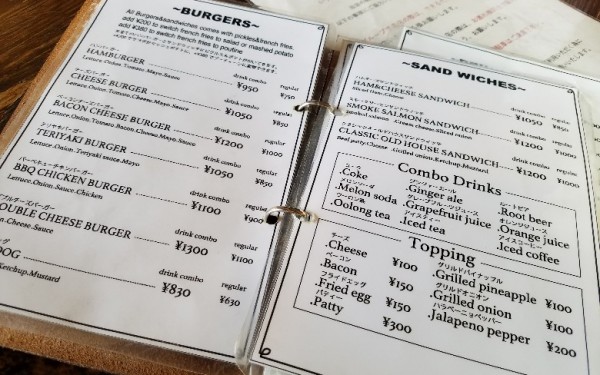 ~BURGERS~
All Burgers&sandwiches comes with pickles&french fries.
add ¥200 to switch french fries to salad or mashed potato
add ¥380 to switch french fries to poutine
ハンバーガー
HAMBURGER
drink combo regular
Lettuce.Onion.Tomato.Mayo.Sauce
¥950 ¥750
チーズバーガー
CHEESE BURGER
drink combo regular
Lettuce.Onion.Tomato.Mayo.Sauce
¥1050 ¥850
ベーコンチーズバーガー
BACON CHEESE BURGER
drink combo regular
Lettuce.Onion.Tomato.Bacon.Cheese.Mayo.Sauce
¥1200 ¥1000
テリヤキバーガー
TERIYAKI BURGER
drink combo regular
Lettuce.Onion.Teriyaki sauce.Mayo
¥1050 ¥850
バーベキューチキンバーガー
BBQ CHICKEN BURGER
drink combo regular
Lettuce.Onion.Sauce.Chicken
¥1100 ¥900
ブルチーズバーガー
DOUBLE CHEESE BURGER
drink combo regular
Lettuce.Onion.Sauce
¥1300 ¥1100
OG
drink combo regular
Ketchup.Mustard
¥830 ¥630
~SAND WICHES~
HAM&CHEESE SANDWICH
drink combo regular
Sliced Ham.Cheese
¥1050 ¥850
SMOKE SALMON SANDWICH
drink combo regular
smoked salmon Cream cheese.Sliced onion
¥1200 ¥1000
CLASSIC OLD HOUSE SANDWICH
drink combo regular
Beef patty.Cheese Grilled onion.Ketchup.Mustard
¥1200 ¥1000
Combo Drinks
コーラ ジンジャーエール ルートビア
.Coke .Ginger ale .Root beer
メロンソーダ グレープフルーツジュース オレンジジュース
.Melon soda .Grapefruit juice .Orange juice
ウーロン茶 アイスティー アイスコーヒー
.Oolong tea .Iced tea .Iced coffee
Topping
チーズ グリルドパイナップル
.Cheese ¥100 .Grilled pineapple ¥100
ベーコン グリルドオニオン
.Bacon ¥150 .Grilled onion ¥100
フライドエッグ ハラペーニョペッパー
.Fried egg ¥150 .Jalapeno pepper ¥200
パティー
.Patty ¥300